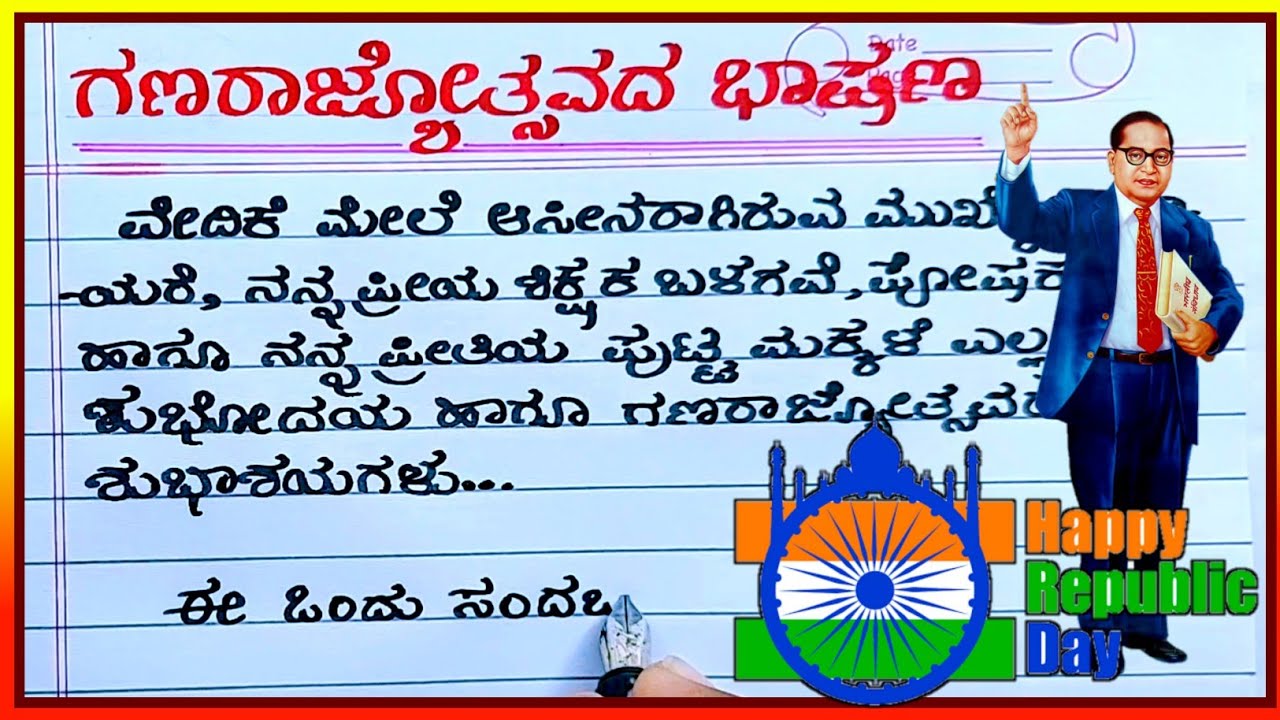 Date
ಗಣರಾಜ್ಯೋತ್ಸವದ ಭಾಷಣ
ವೇದಿಕೆ ಮೇಲೆ ಆಸೀನರಾಗಿರುವ
-ಯರೆ, ನನ್ನ ಪ್ರೀಯ ಶಿಕ್ಷಕ ಬಳಗವೆ,
ಹಾಗೂ ನನ್ನ ಪ್ರೀತಿಯ ಪುಟ್ಟ ಮಕ್ಕಳೆ
ಶುಭೋದಯ ಹಾಗೂ ಗಣರಾಜ್ಯೋತ್ಸವದ
ಶುಭಾಶಯಗಳು...
ಈ ಒಂದು
Happy
Republic
Day